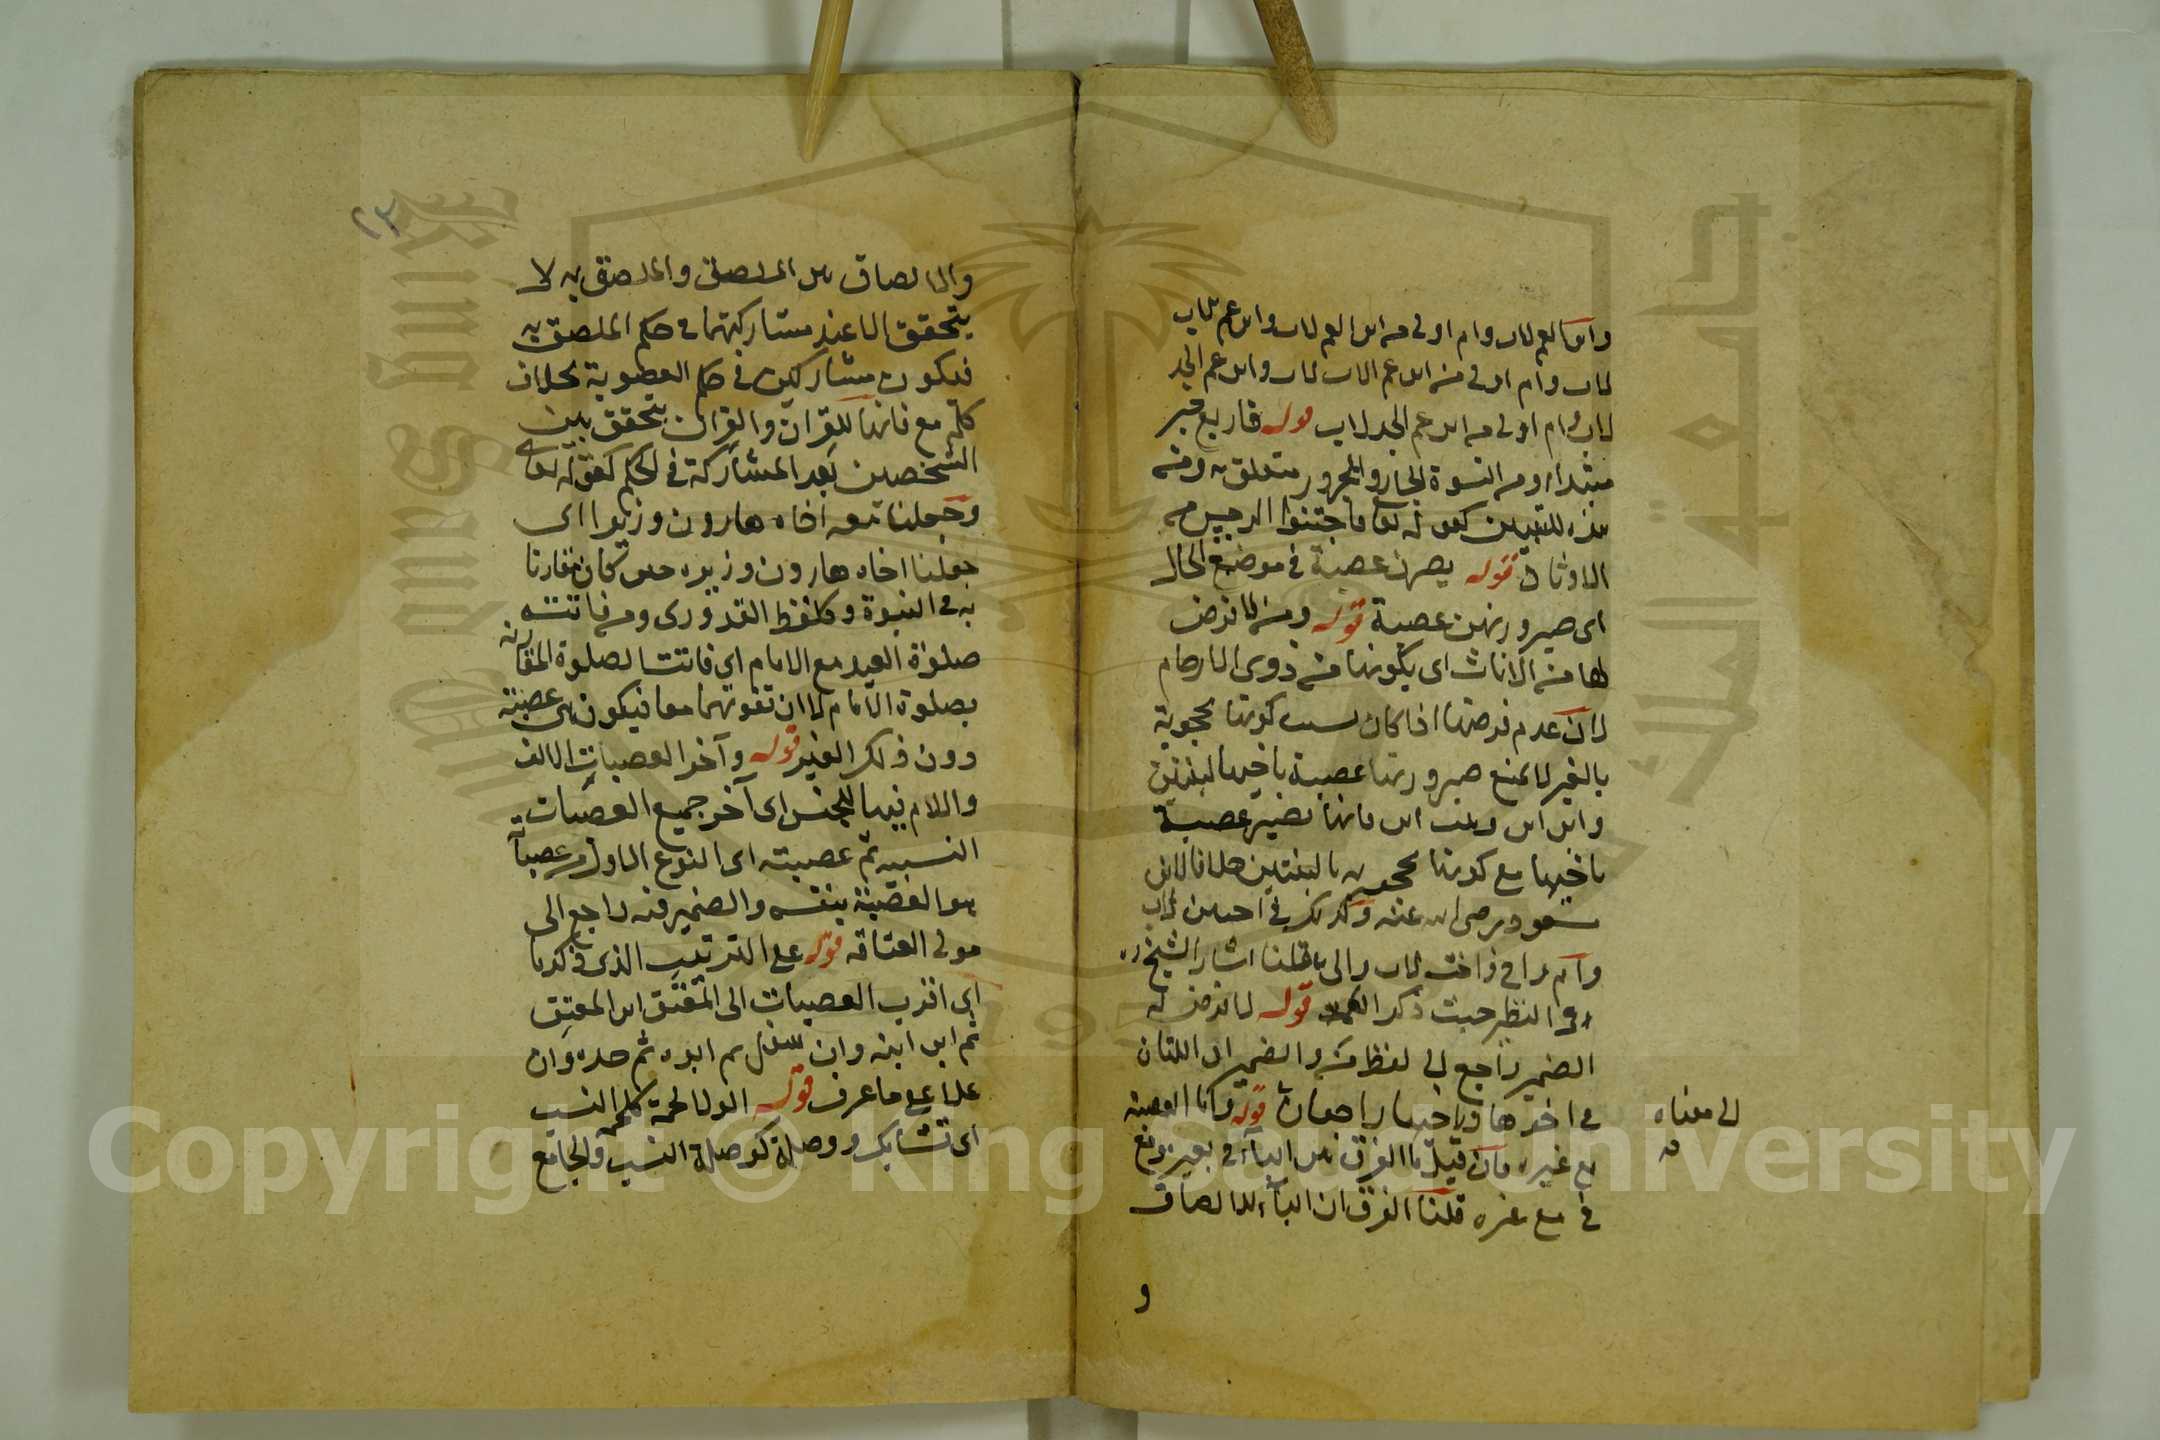 وابن العم لاب وام اولى من ابن العم لاب وابن عم الاب
لاب وام اولى من ابن عم الاب لاب وابن عم الجد
لاب وام اولى من ابن عم الجد لاب قوله فاربع خبر
مبتداء ومن النسوة الجار والمجرور متعلق به ومن
هذه للتبيين كقوله تعا فاجتنبوا الرجس من
الاوثان قوله يصرن عصبة في موضع الحال
اى صيرورتهن عصبة قوله ومن لا فرض
لها من الاناث اى بكونها من ذوى الارحام
لان عدم فرضها اذا كان بسبب كونها محجوبة
بالغير لا يمنع صيرورتها عصبة باخيها لبنتين
وابن ابن وبنت ابن فانها تصير عصبة
باخيها مع كونها محجوبة بالبنتين خلافا لابن
مسعود رضى الله عنه وكذلك في اختين لاب
وام واخ واخت لاب والى ما قلنا اشار الشيخ ره
في النظر حيث ذكر قوله لا فرض له
الضمير راجع الى لفظ من والضميران اللتان
في اخوها وباخيها راجعان قوله واما العصبة
الى معناه
مع غيره فان قيل ما الفرق بين الباء في بغيره ومع
في مع غيره قلنا الفرق ان الباء للالصاق
و
٢٣
والالصاق بين الملصق والملصق به لا
يتحقق الا عند مشاركتهما في حكم الملصق به
فيكون مشاركين في حكم العصوبة بخلاف
كلمة مع فانها للقران والقران يتحقق بين
الشخصين بغير المشاركة في الحكم كقوله تعالى
وجعلنا معه اخاه هارون وزيرا اى
جعلنا اخاه هارون وزيره حتى كان مقارنا
به في النبوة وكلفظ القدورى ومن فاتته
صلوة العيد مع الامام اى فاتته الصلوة المقارنة
بصلوة الامام لا ان تفوتهما معا فيكون هى عصبة
دون ذلك الغير قوله وآخر العصبات الالف
واللام فيها للجنس اى آخر جميع العصبات
النسبيه ثم عصبته اى النوع الاول من عصباته
هو العصبة بنفسه والضمير فيه راجع الى
مولى العتاقه قوله على الترتيب الذى ذكرنا
اى اقرب العصبات الى المعتق ابن المعتق
ثم ابن ابنه وان سفل ثم ابوه ثم جده وان
علا على ما عرف قوله الولا لحمة كلحمة النسب
اى تشابك ووصلة كوصلة النسب والجامع